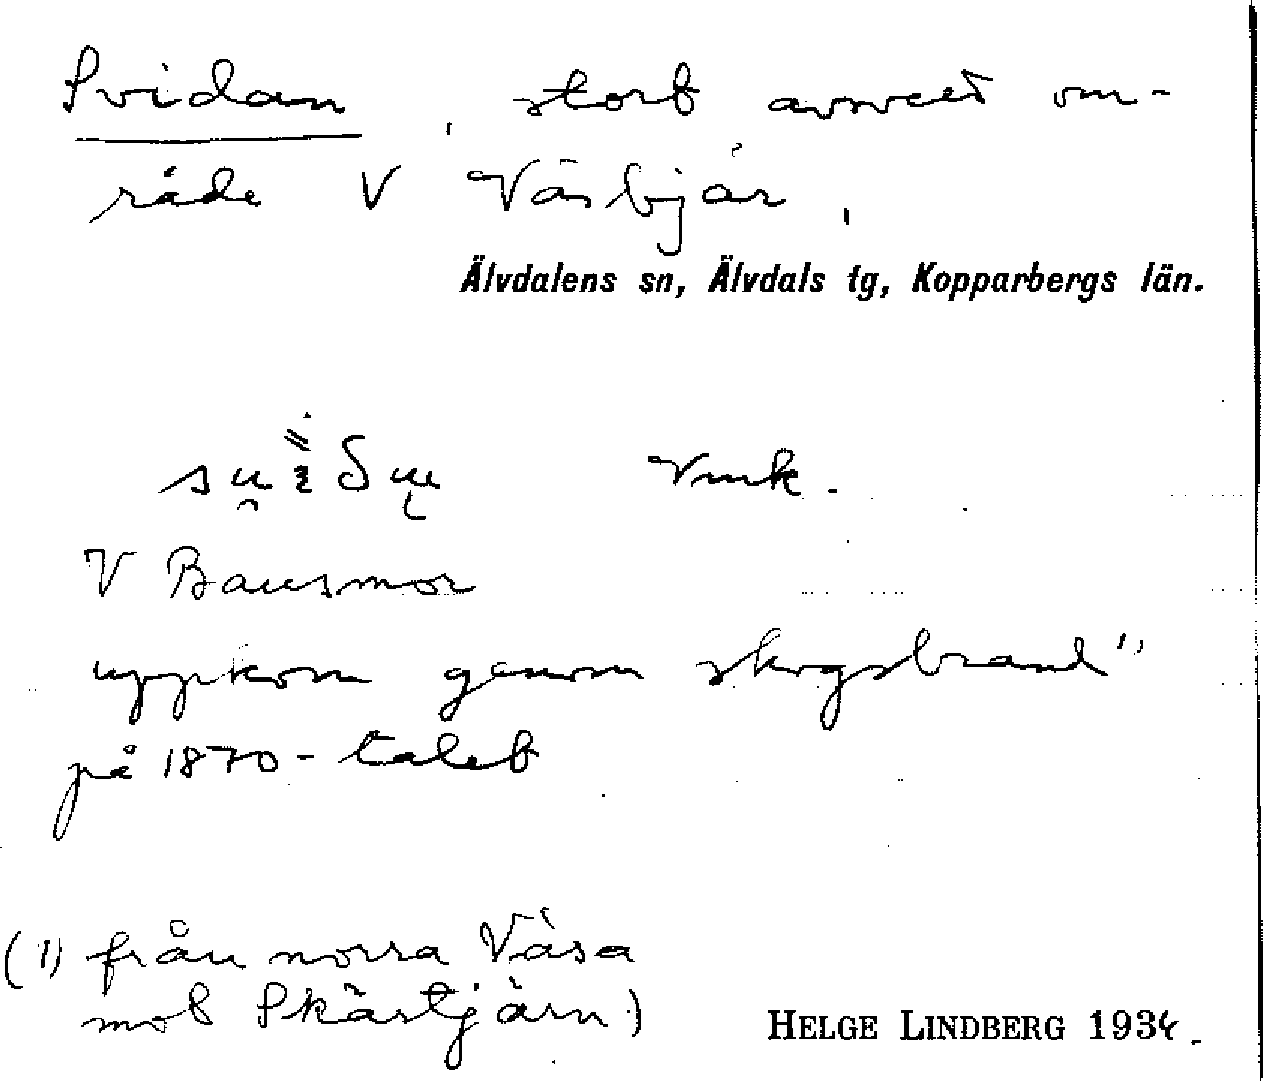 Svidan, stort avsvett om-
råde V Väsbjär,
Älvdalens sn, Älvdals tg, Kopparbergs län.
Vmk.
V Bausmor
uppkom genom skogsbrand 1)
på 1870-talet
(1) från norra Väsa
mot Skärtjärn)
HELGE LINDBERG 1934.